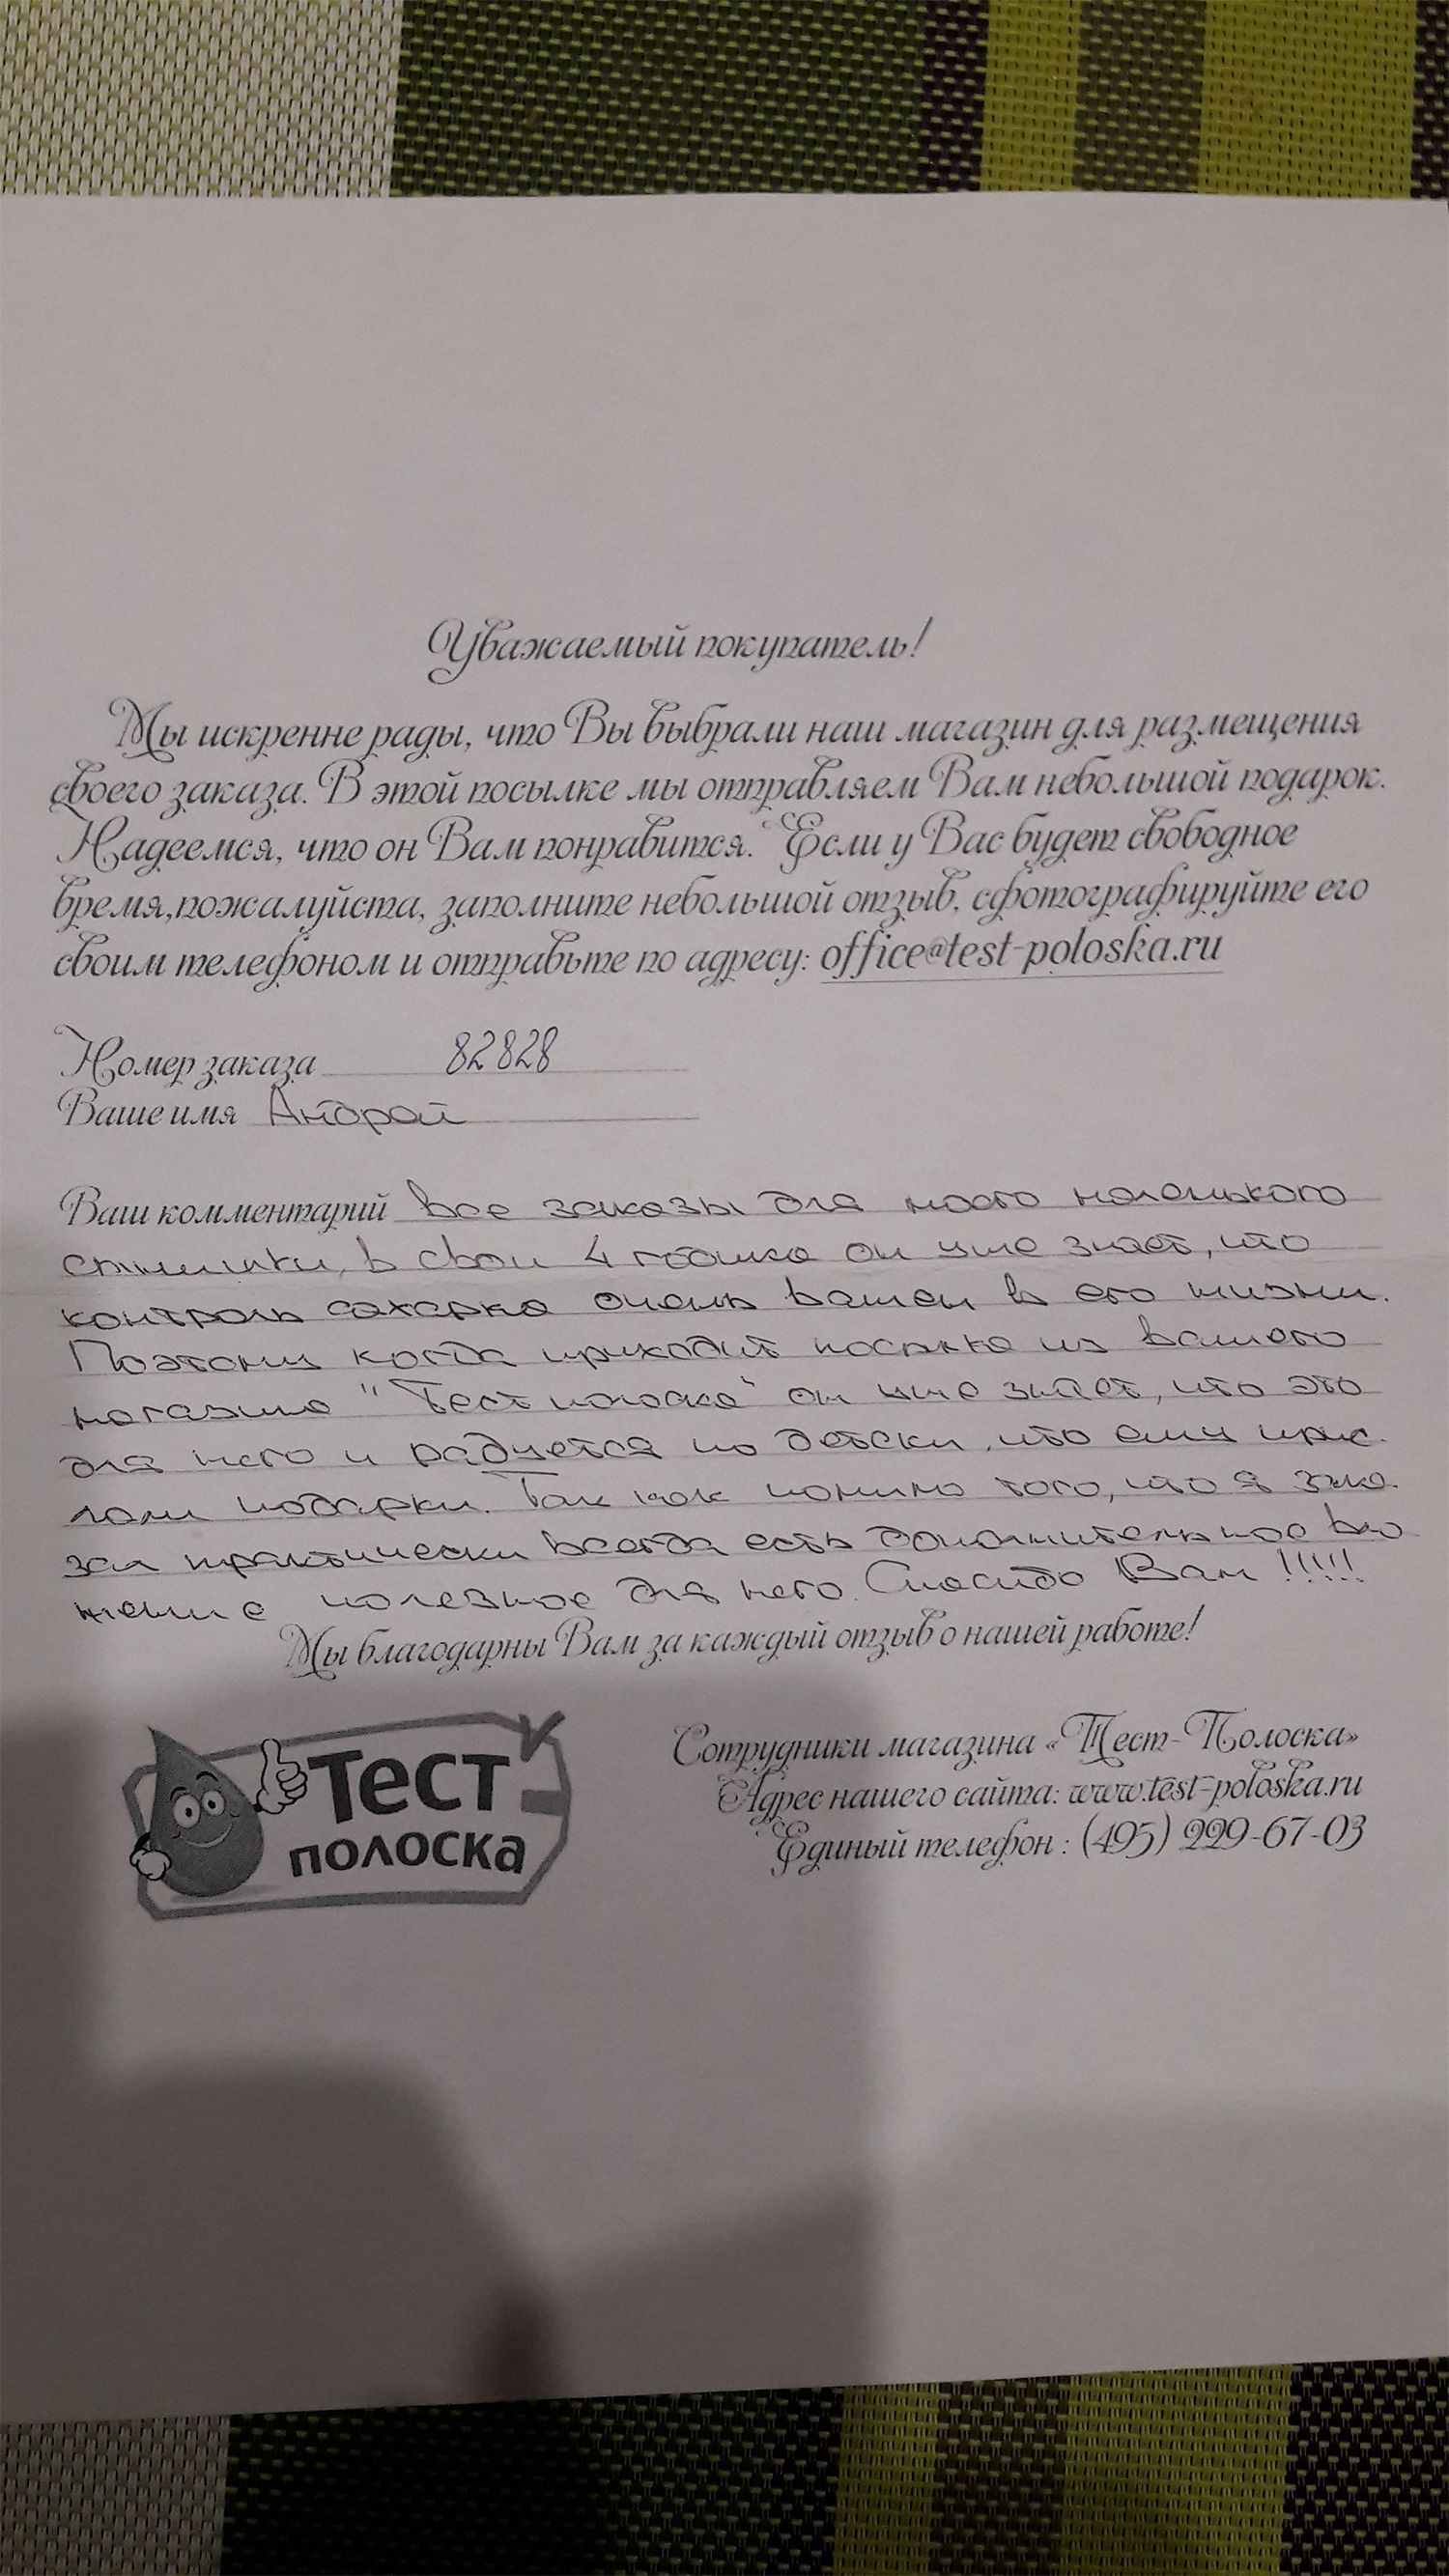 Уважаемый покупатель!
Мы искренне рады, что Вы выбрали наш магазин для размещения
своего заказа. В этой посылке мы отправляем Вам небольшой подарок.
Надеемся, что он Вам понравится. Если у Вас будет свободное
время,пожалуйста, заполните небольшой отзыв, сфотографируйте его
своим телефоном и отправьте по адресу: office@test-poloska.ru
Номер заказа 82828
Ваше имя Андрей
Ваш комментарий Все заказы для моего маленького
сынишки, в свои 4 годика он уже знает, что
контроль сахарка очень важен в его жизни.
Поэтому когда приходит посылка из вашего
магазина "Тест полоска" он уже знает, что это
для него и радуется по детски, что ему прис
лали подарки. Так как помимо того, что я зака
зал практически всегда есть дополнительное вло
жение полезное для него. Спасибо Вам !!!!!
Мы благодарны Вам за каждый отзыв о нашей работе!
Тест
полоска
Сотрудники магазина «Тест-Полоска»
Адрес нашего сайта: www.test-poloska.ru
Единый телефон : (495) 229-67-03